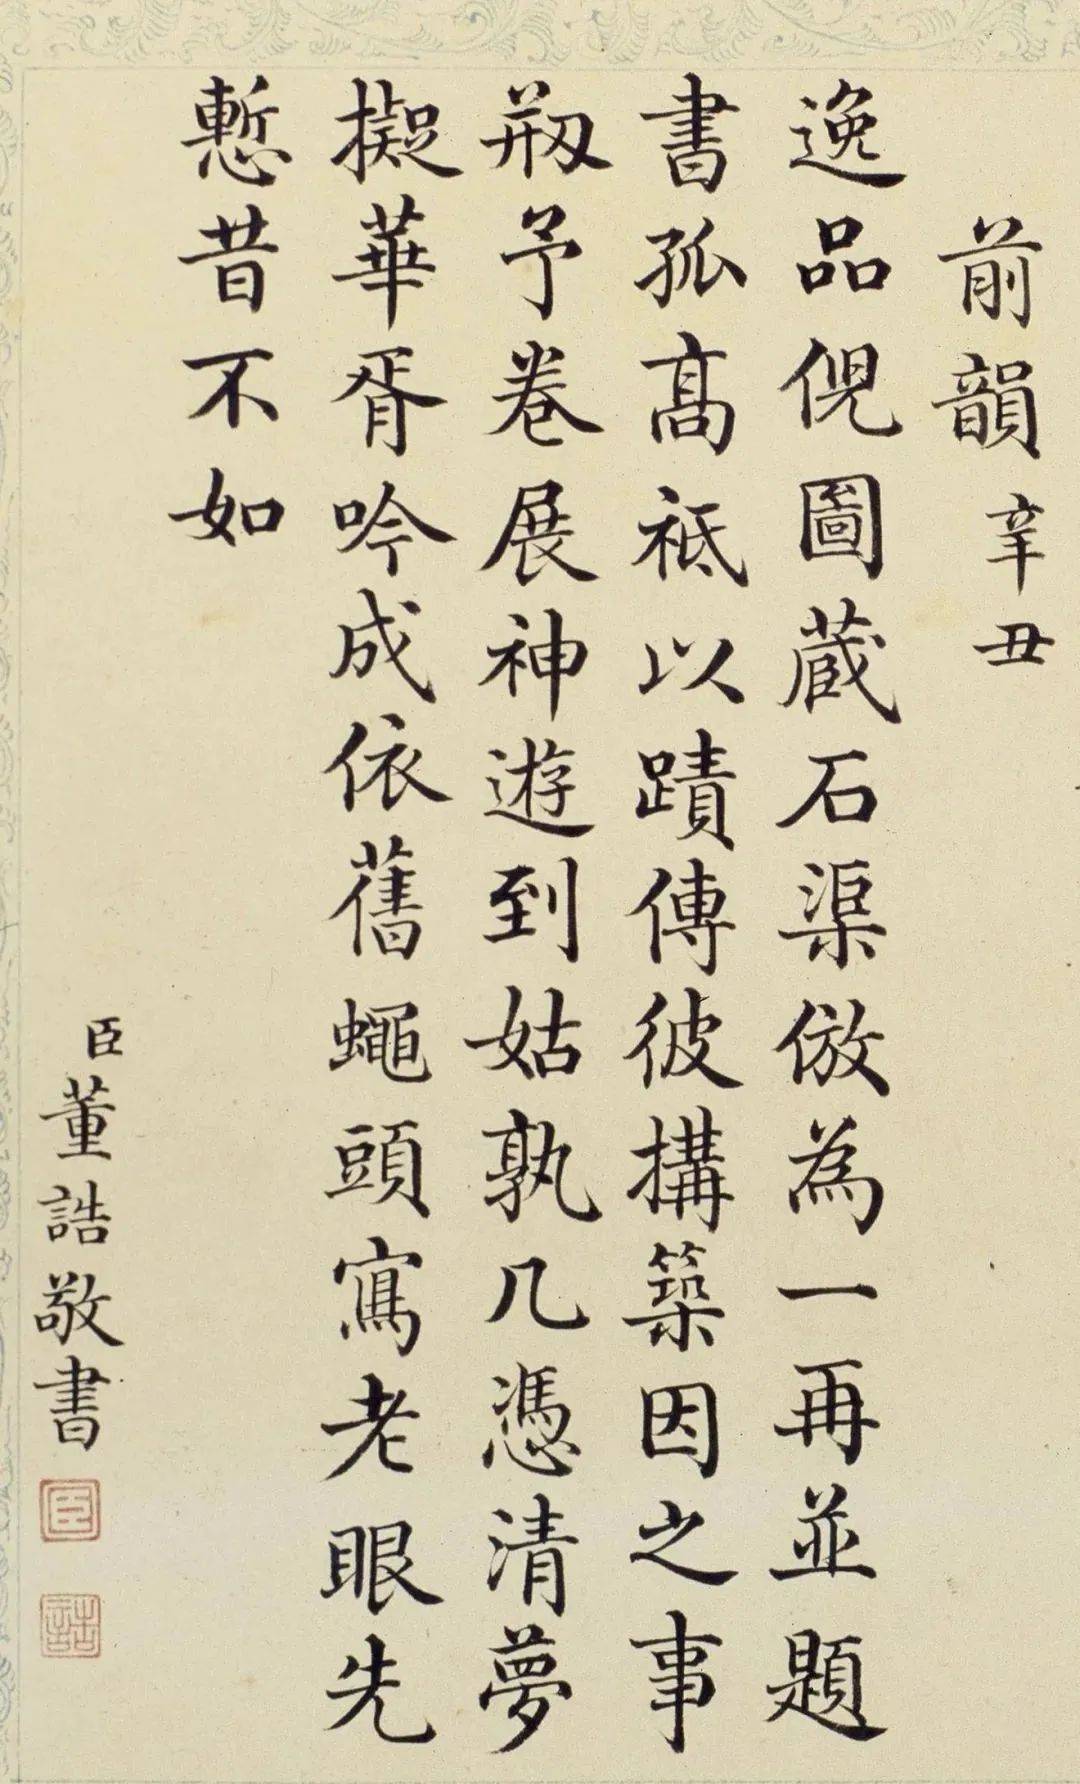 前韻辛丑
逸品倪圖蔵石渠倣為一再並題
書孤髙祗以蹟傳彼構築因之事
剏予卷展神遊到姑孰几憑清夢
擬華胥吟成依舊蠅頭寫老眼先
慙昔不如
臣董誥敬書
臣
誥